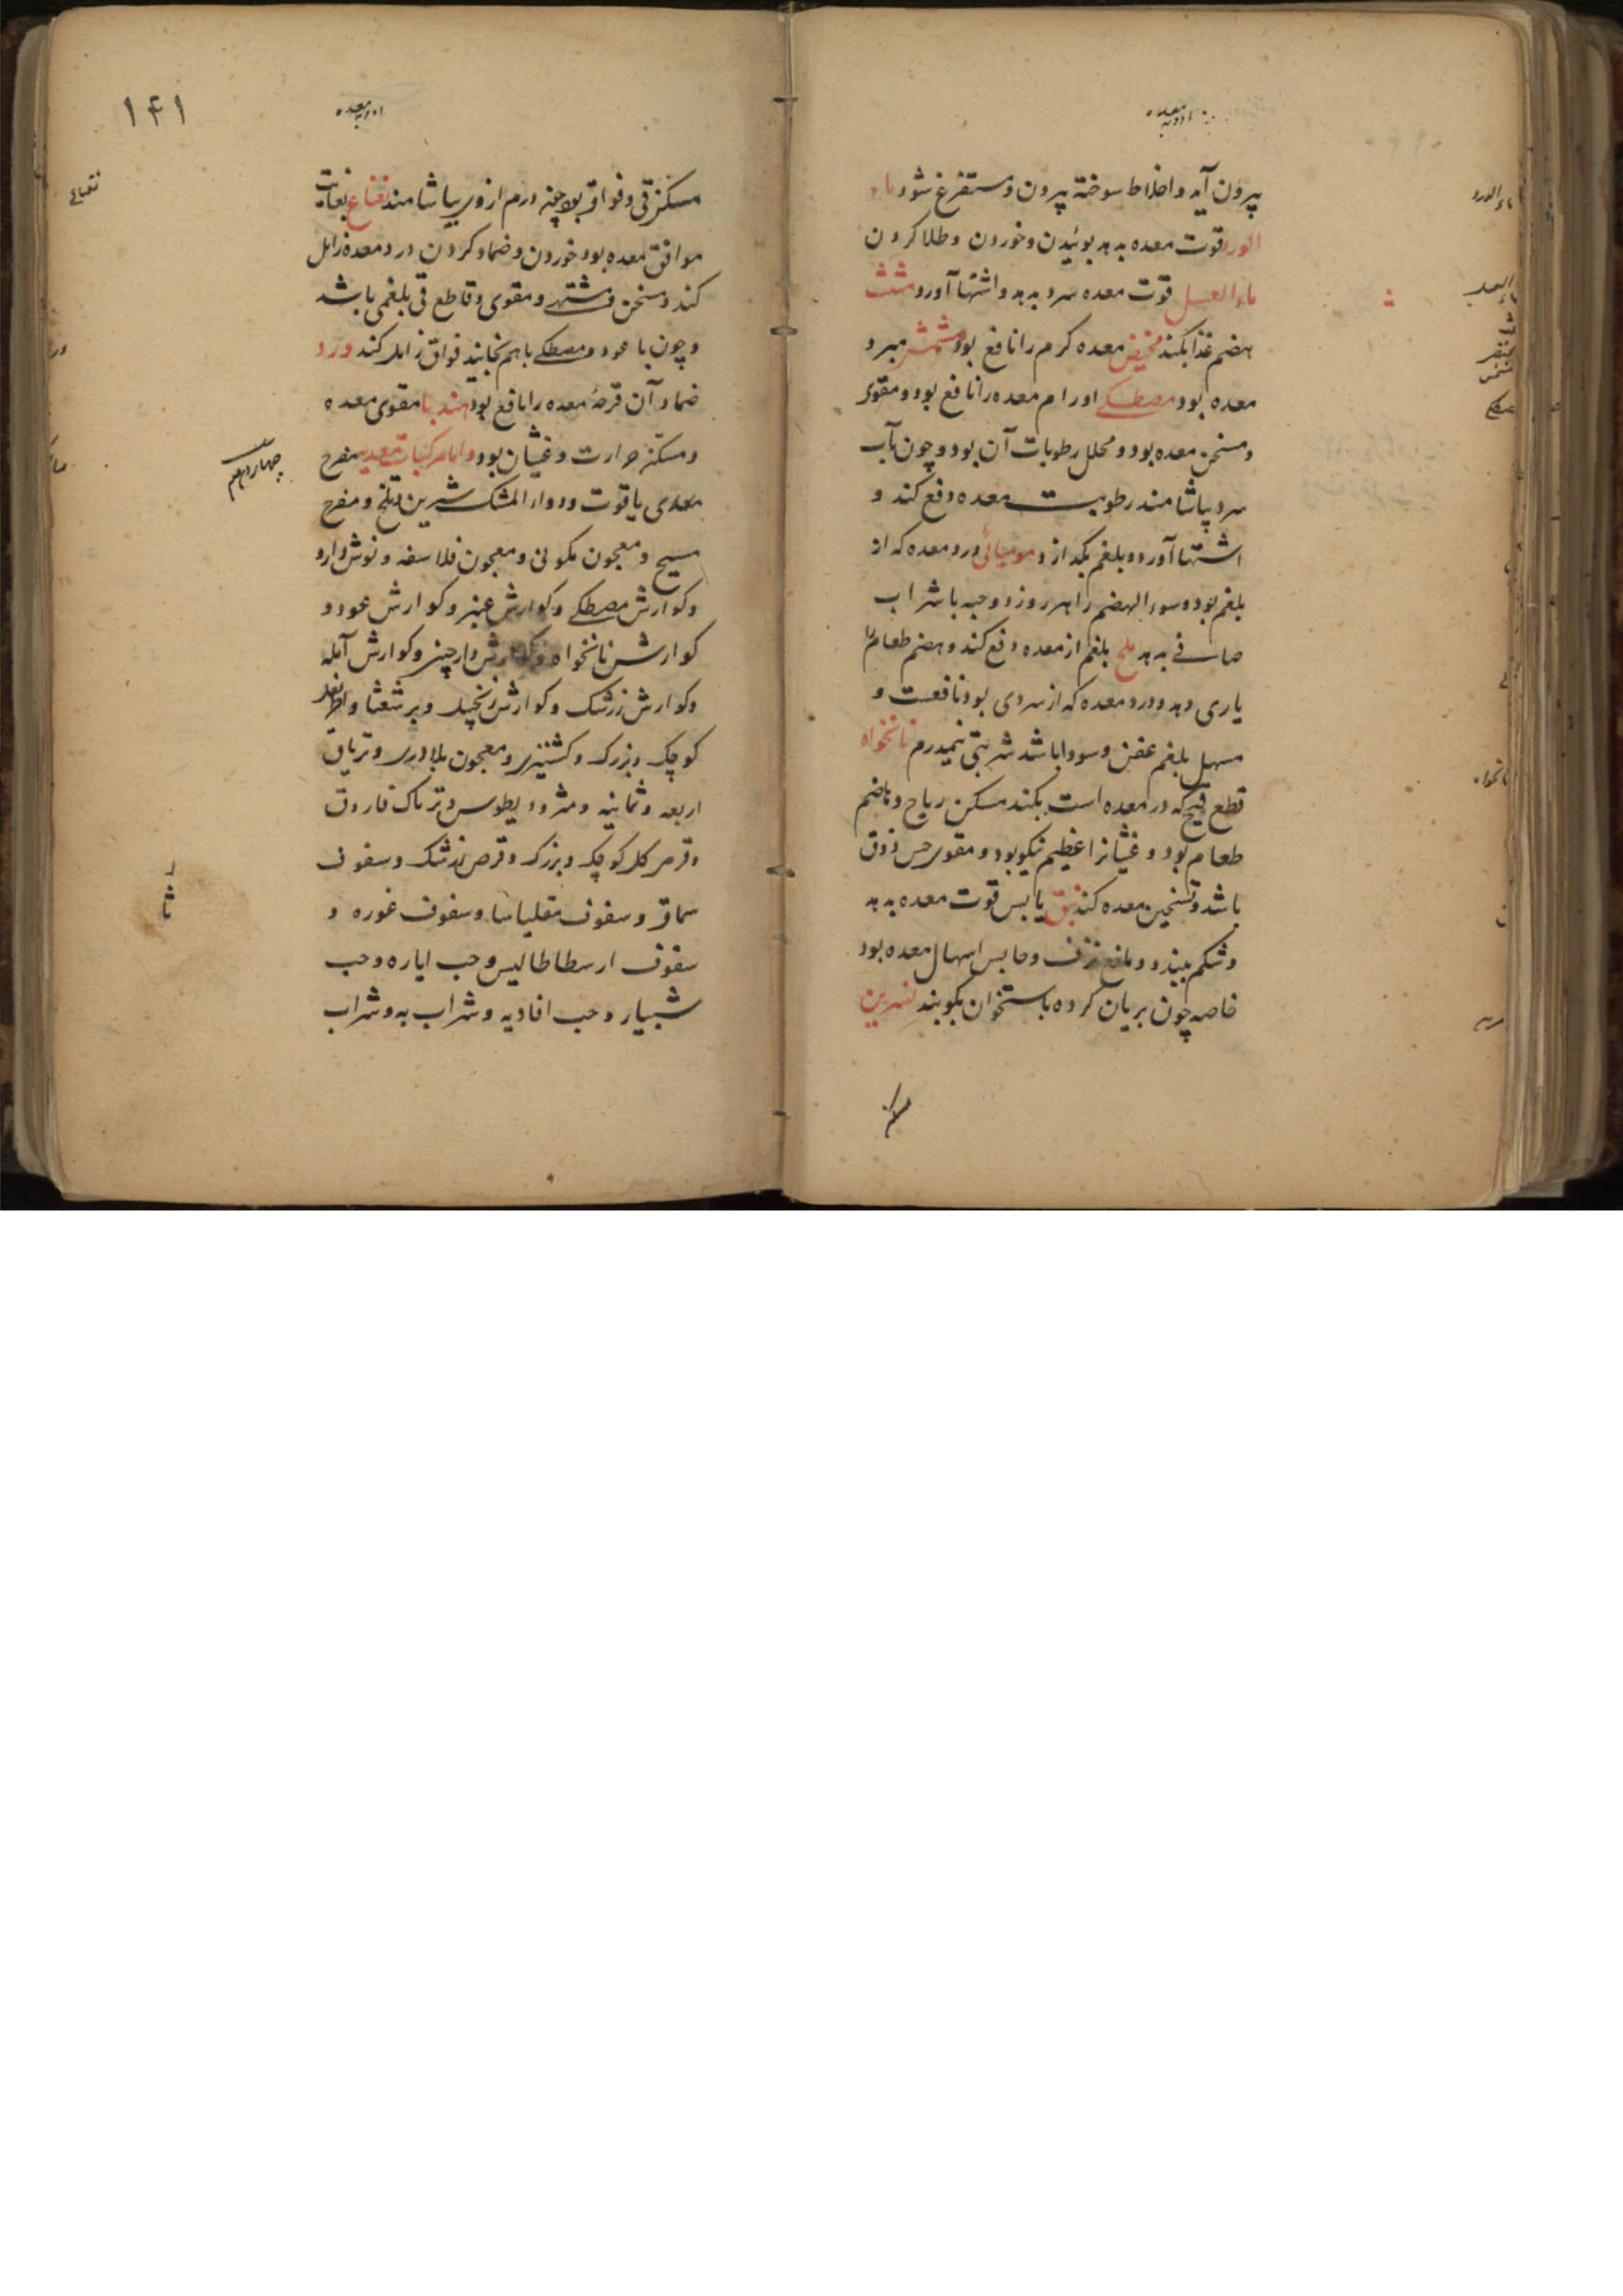 ادویه معده
بیرون آید و اخلاط سوخته بیرون و مستفرغ شود ماء
الورد قوت معده بدهد بوئیدن و خوردن و طلا کردن
ماء العسل قوت معده سرد بدهد و اشتها آورد مثلث
هضم غذا بکند مخیض معده گرم را نافع بود مشمش مبرد
معده بود مصطکی اورام معده را نافع بود و مقوی
و مسخن معده بود و محلل رطوبات آن بود و چون بآب
سرد بیاشامند رطوبت معده دفع کند و
اشتها آورد و بلغم بگدازد مومیائی درد معده که از
بلغم بود و سوء الهضم را هر روز دو حبه با شراب
صافی بدهد ملح بلغم از معده دفع کند و هضم طعام را
یاری دهد و درد معده که از سردی بود نافعست و
مسهل بلغم عفن و سودا باشد شربتی نیمدرم نانخواه
قطع قیح که در معده است بکند مسکن ریاح و هاضم
طعام بود و غثیانرا عظیم نیکو بود و مقوی حس ذوق
باشد و تسخین معده کند نبق یابس قوت معده بدهد
و شکم ببندد و مانع نزف و حابس اسهال معده بود
خاصه چون بریان کرده با استخوان بکوبند نسرین
ماء الورد
نانخواه
ادویه معده
۱۴۱
مسکن قی و فواق بود چهار درم از وی بیاشامند نعناع بغایت
موافق معده بود خوردن و ضماد کردن درد معده زایل
کند و مسخن و مشتهی و مقوی و قاطع قی بلغمی باشد
و چون با عود و مصطکی باهم بخایند فواق زایل کند ورد
ضماد آن قرحهٔ معده را نافع بود هندبا مقوی معده
و مسکن حرارت و غثیان بود و اما مرکبات معدیه مفرح
معدی یاقوت و دواء المشک شیرین و تلخ و مفرح
مسیح و معجون کمونی و معجون فلاسفه و نوش دارو
و کوارش مصطکی و کوارش عنبر و کوارش عود و
کوارش نانخواه و کوارش دارچینی و کوارش آمله
و کوارش زرشک و کوارش زنجبیل و برشعثا و اطریفل
کوچک و بزرگ و کشنیزی و معجون بلادری و تریاق
اربعه و ثمانیه و مثرودیطوس و تریاک فاروق
و قرص گل کوچک و بزرک و قرص زرشک و سفوف
سماق و سفوف مقلیاسا و سفوف غوره و
سفوف ارسطاطالیس و حب ایاره و حب
شبیار و حب افاویه و شراب به و شراب
نعناع
چهاردهم